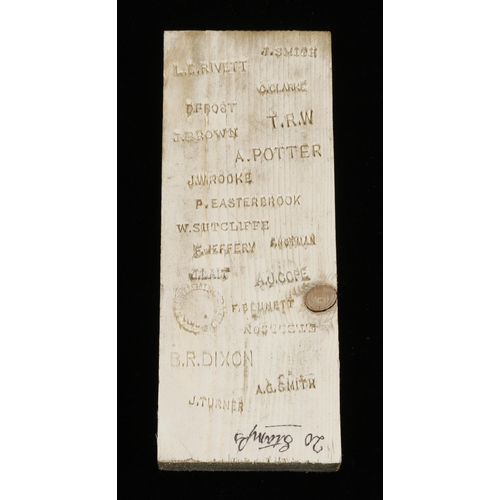 J.SMITH
L.E.RIVETT
C.CLARKE
D.FROST
T.R.W
J.BROWN
A.POTTER
J.W.ROOKE
P. EASTERBROOK
W. SUTCLIFFE
E.JEFFERY
A.J.COPE
F.BENNETT
B.R.DIXON
A.G.SMITH
J.TURNER
20 Stamps